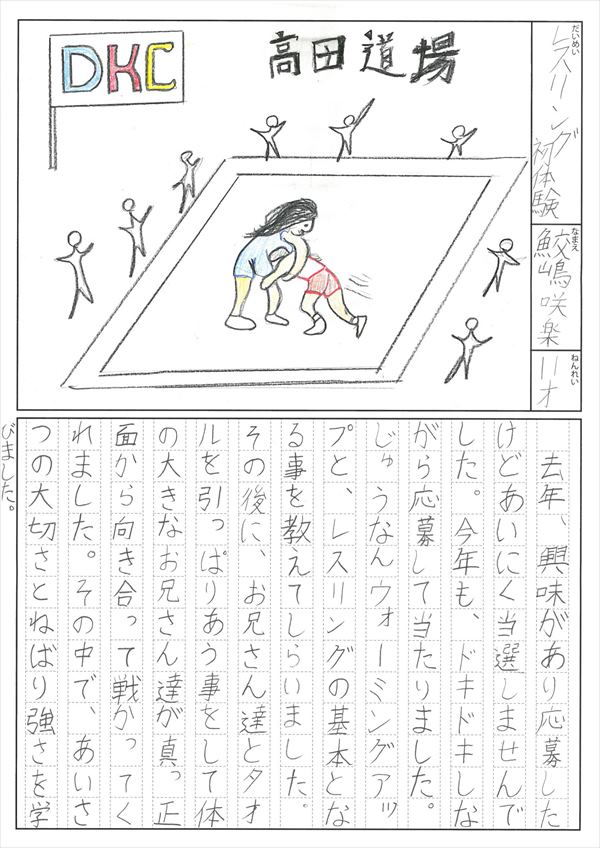 DKC
高田道場
だいめい
レスリング初体験
なまえ
鮫嶋咲楽
ねんれい
11才
去年、興味があり応募した
けどあいにく当選しませんで
した。今年も、ドキドキしな
がら応募して当たりました。
じゅうなんウォーミングアッ
プと、レスリングの基本とな
る事を教えてしらいました。
その後に、お兄さん達とタオ
ルを引っぱりあう事をして体
の大きなお兄さん達が真っ正
面から向き合って戦かってく
れました。その中で、あいさ
つの大切さとねばり強さを学
びました。